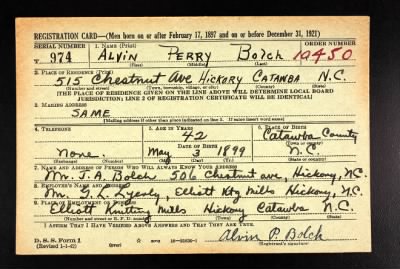 REGISTRATION CARD—(Men born on or after February 17, 1897 and on or before December 31, 1921)
SERIAL NUMBER 1. NAME (Print) ORDER NUMBER
974 ALVIN PERRY Bolch 10450
(First) (Middle) (Last)
2. PLACE OF RESIDENCE (Print)
515 Chestnut Ave Hickory Catawba N.C.
(Number and street) (Town, township, village, or city) (County) (State)
[THE PLACE OF RESIDENCE GIVEN ON THE LINE ABOVE WILL DETERMINE LOCAL BOARD
JURISDICTION; LINE 2 OF REGISTRATION CERTIFICATE WILL BE IDENTICAL]
3. MAILING ADDRESS
SAME
[Mailing address if other than place indicated on line 2. If same insert word same]
4. TELEPHONE 5. AGE IN YEARS 6. PLACE OF BIRTH
42 Catawba County
DATE OF BIRTH (Town or county)
None May 3 1899 N.C.
(Exchange) (Number) (Mo.) (Day) (Yr.) (State or country)
7. NAME AND ADDRESS OF PERSON WHO WILL ALWAYS KNOW YOUR ADDRESS
Mr. J.A. Bolch 506 Chestnut ave, Hickory, N.C.
8. EMPLOYER'S NAME AND ADDRESS
Mr. G.L. Elliott Ktg Mills Hickory, N.C.
9. PLACE OF EMPLOYMENT OR BUSINESS
Elliott Knitting Mills Hickory Catawba N.C.
(Number and street or R. F. D. number) (Town) (County) (State)
I AFFIRM THAT I HAVE VERIFIED ABOVE ANSWERS AND THAT THEY ARE TRUE.
D. S. S. Form 1 Alvin P. Bolch
(Revised 1-1-42) (over) (Registrant's signature)